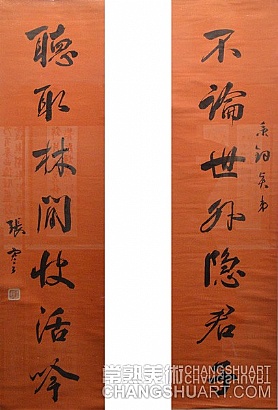 不論世外隐君
秉鈞
聽取林間快活吟
張謇
常熟美術CHANGSHUART
CHANGSHUART.COM